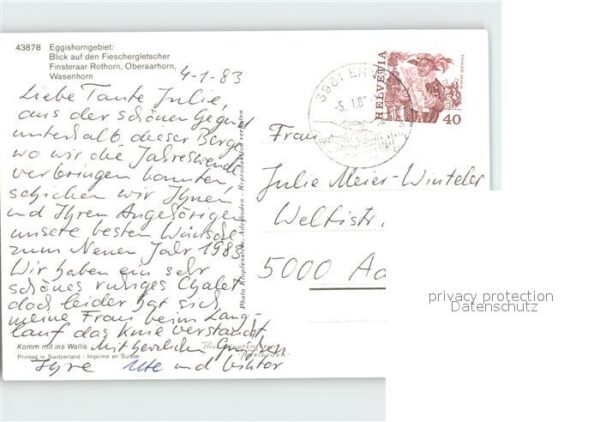 43878 Eggishorngebiet:
Blick auf den Fieschergletscher
Finsteraar Rothorn, Oberaarhorn,
Wasenhorn
4-1-83
Liebe Tante Julie,
aus der schönen Gegend
unterhalb dieser Berge
wo wir die Jahreswende
verbringen konnten,
schicken wir Ihnen
und Ihren Angehörigen
unsere besten Wünsche
zum Neuen Jahr 1983
Wir haben ein sehr
schönes ruhiges Chalet
doch leider hat sich
meine Frau beim Lang-
lauf das Knie verstaucht,
Mit herzlichen Grüssen
Ihre Ute und
Komm mit ins Wallis
Printed in Switzerland - Imprimé en Suisse
Photo Klopfenstein, Adelboden - Reproduktion verboten
5.1.83
HELVETIA
40
Frau
Julie Meier-Winteler
Weltistr.
5000 Aa
privacy protection
Datenschutz